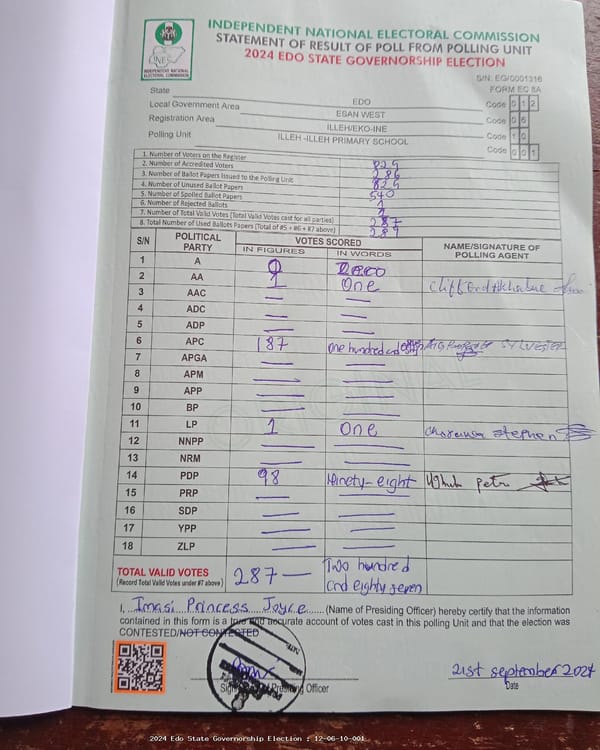 INDEPENDENT NATIONAL ELECTORAL COMMISSION
STATEMENT OF RESULT OF POLL FROM POLLING UNIT
2024 EDO STATE GOVERNORSHIP ELECTION
INDEPENDENT NATIONAL ELECTORAL COMMISSION
S/N: EG/0001316
FORM EC 8A
State EDO Code 0 1 2
Local Government Area ESAN WEST Code 0 6
Registration Area ILLEH/EKO-INE Code 1 0
Polling Unit ILLEH -ILLEH PRIMARY SCHOOL Code 0 0 1
1. Number of Voters on the Register 829
2. Number of Accredited Voters 286
3. Number of Ballot Papers Issued to the Polling Unit 829
4. Number of Unused Ballot Papers 540
5. Number of Spoiled Ballot Papers 1
6. Number of Rejected Ballots 1
7. Number of Total Valid Votes (Total Valid Votes cast for all parties) 287
8. Total Number of Used Ballots Papers (Total of #5 + #6 + #7 above) 289
S/N POLITICAL PARTY VOTES SCORED NAME/SIGNATURE OF POLLING AGENT
IN FIGURES IN WORDS
1 A 0 Zero
2 AA 1 One
3 AAC — —
4 ADC — —
5 ADP — —
6 APC 187 One hundred and SYLVESTER
7 APGA — —
8 APM — —
9 APP — —
10 BP — —
11 LP 1 One Stephen
12 NNPP — —
13 NRM — —
14 PDP 98 Ninety-eight
15 PRP — —
16 SDP — —
17 YPP — —
18 ZLP — —
TOTAL VALID VOTES 287 — Two hundred
(Record Total Valid Votes under #7 above) and eighty seven
I, Imasi Princess Joyce (Name of Presiding Officer) hereby certify that the information
contained in this form is a true and accurate account of votes cast in this polling Unit and that the election was
CONTESTED/NOT CONTESTED
21st september 2024
Signature of Presiding Officer Date
2024 Edo State Governorship Election : 12-06-10-001